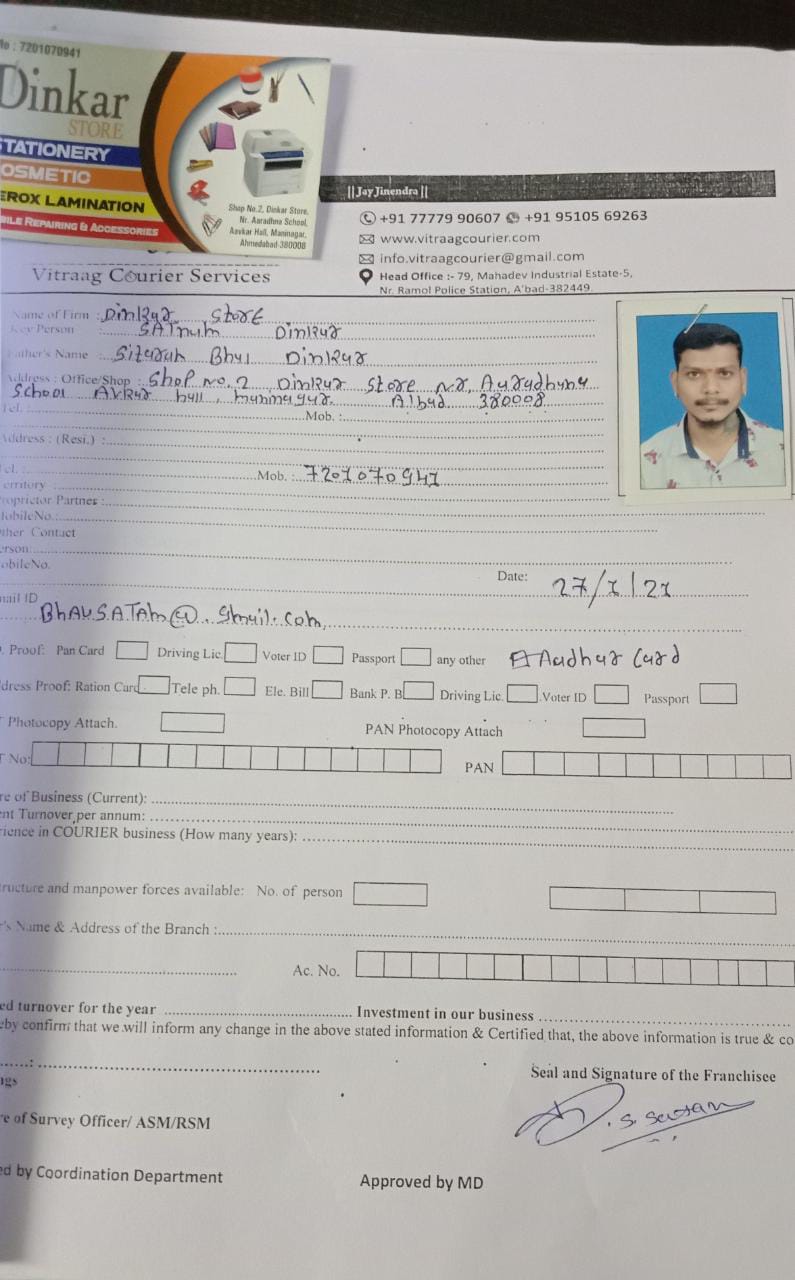 No : 7201070941
Dinkar
STORE
STATIONERY
COSMETIC
XEROX LAMINATION
MOBILE REPAIRING & ACCESSORIES
Shop No.2, Dinkar Store,
Nr. Aaradhna School,
Aavkar Hall, Maninagar,
Ahmedabad-380008
|| Jay Jinendra ||
+91 77779 90607 +91 95105 69263
www.vitraagcourier.com
info.vitraagcourier@gmail.com
Head Office :- 79, Mahadev Industrial Estate-5,
Nr. Ramol Police Station, A'bad-382449.
Vitraag Courier Services
Name of Firm : Dinkar Store
Key Person : SATnam Dinkar
Father's Name Sitaram Bhai Dinkar
Address : Office/Shop : Shop no. 2 Dinkar Store nr, Aaradhana
School Avkar hall, maninagar, A'bad 380008
Tel. : Mob. :
Address : (Resi.) :
Tel. : Mob. : 7201070941
Territory :
Proprietor Partner :
MobileNo. :
Other Contact
Person:
MobileNo.
Date: 27/1/21
Email ID
BhAUSATAm@gmail.com,
. Proof: Pan Card Driving Lic. Voter ID Passport any other Aadhar Card
dress Proof: Ration Card Tele ph. Ele. Bill Bank P. B Driving Lic. Voter ID Passport
Photocopy Attach. PAN Photocopy Attach
T No: PAN
re of Business (Current):
ent Turnover per annum:
rience in COURIER business (How many years):
tructure and manpower forces available: No. of person
r's Name & Address of the Branch :
Ac. No.
ed turnover for the year Investment in our business
eby confirm that we will inform any change in the above stated information & Certified that, the above information is true & co
ngs
Seal and Signature of the Franchisee
re of Survey Officer/ ASM/RSM
ed by Coordination Department
Approved by MD